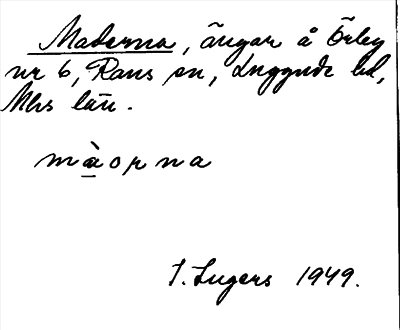 Maderna, ängar å Örby
nr 6, Raus sn, Luggude hd,
Mhs län.
màorna
I. Ingers 1949.